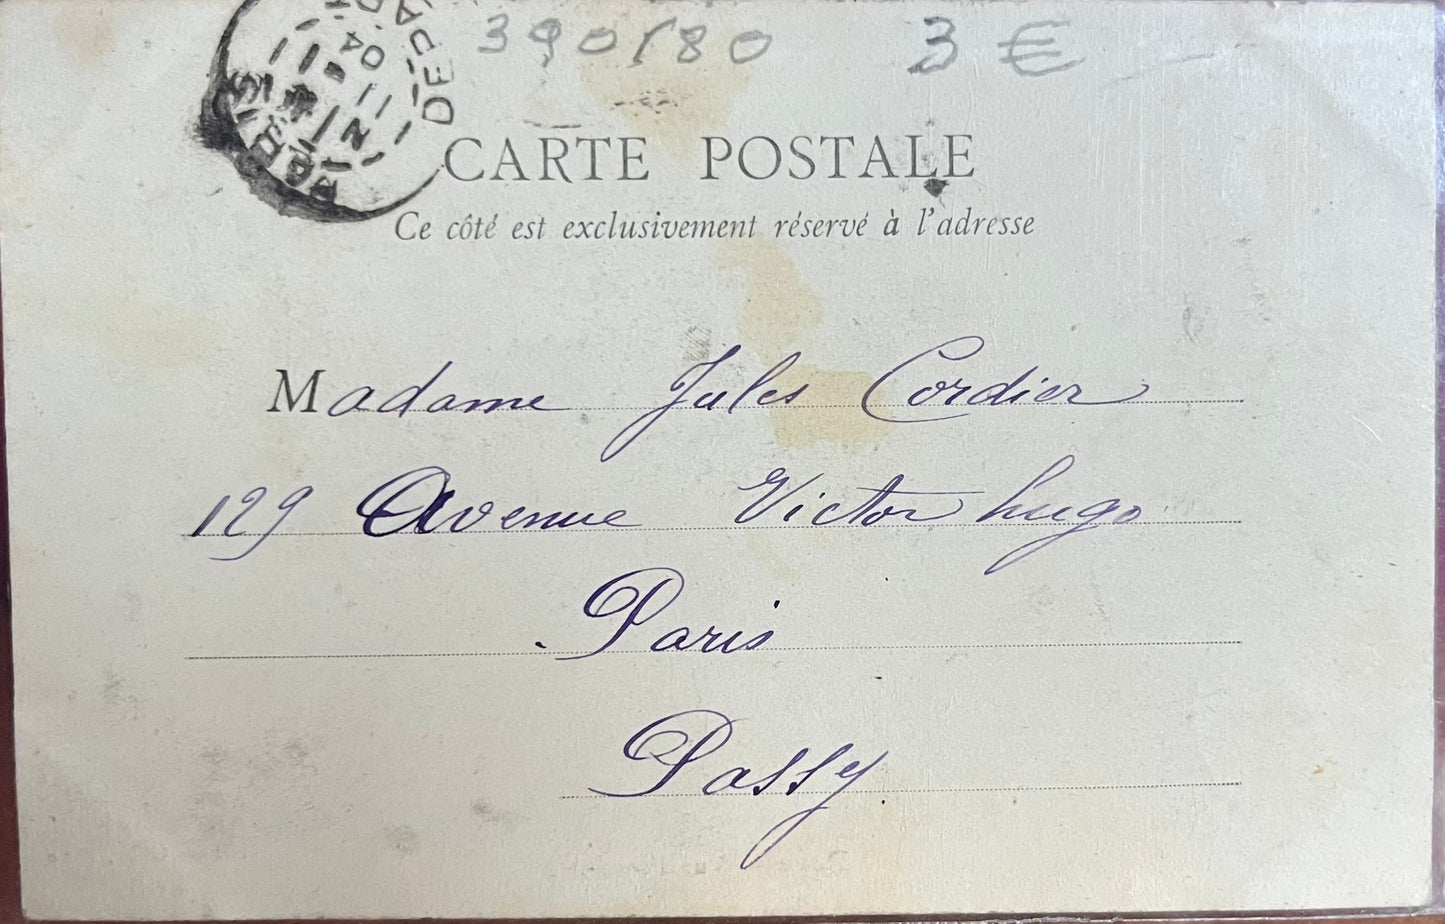 390/80 3 €
PARIS DEPART
04
CARTE POSTALE
Ce côté est exclusivement réservé à l'adresse
Madame Jules Cordier
129 Avenue Victor hugo
Paris
Passy